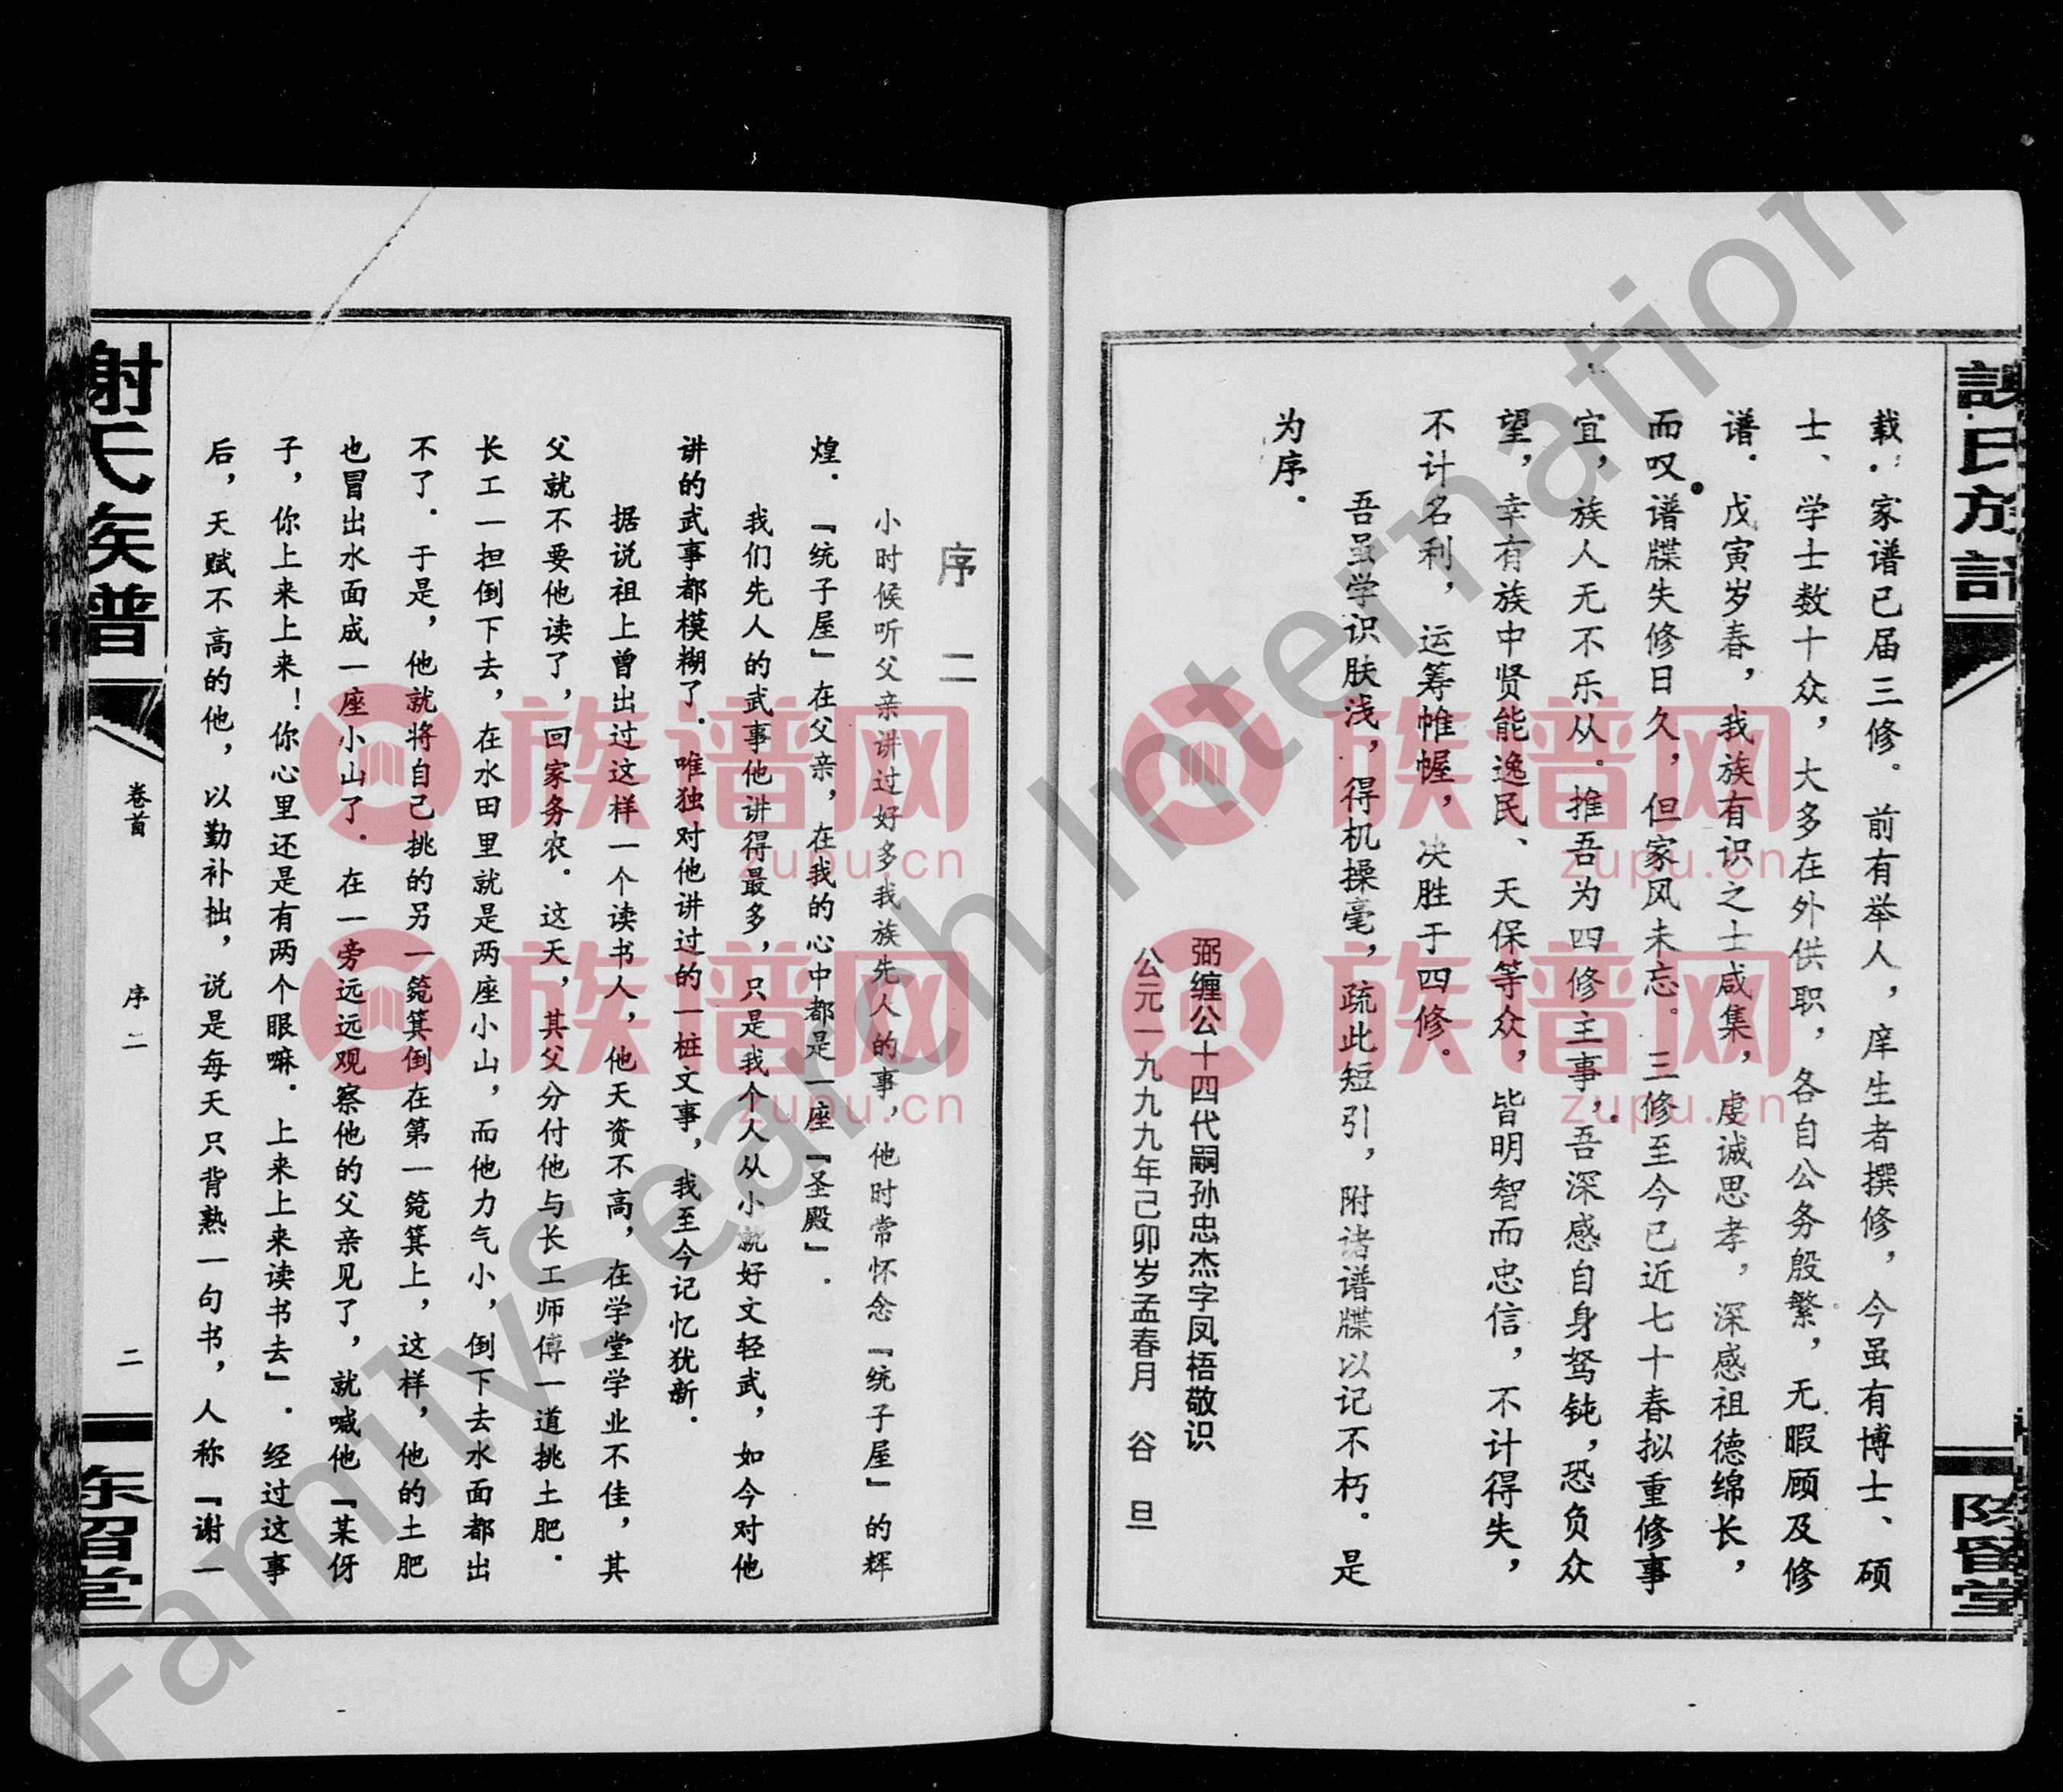 载．家谱已届三修．前有举人，庠生者撰修，今虽有博士、硕
士、学士数十众，大多在外供职，各自公务殷繁，无暇顾及修
谱．戊寅岁春，我族有识之士咸集，虔诚思孝，深感祖德绵长，
而叹谱牒失修日久，但家风未忘．三修至今已近七十春拟重修事
宜，族人无不乐从．推吾为四修主事，吾深感自身驽钝，恐负众
望，幸有族中贤能逸民、天保等众，皆明智而忠信，不计得失，
不计名利，运筹帷幄，决胜于四修．
吾虽学识肤浅，得机操毫，疏此短引，附诸谱牒以记不朽．是
为序．
弼缠公十四代嗣孙忠杰字凤梧敬识
公元一九九九年己卯岁孟春月 谷 旦
陈留堂
序 二
小时候听父亲讲过好多我族先人的事，他时常怀念『统子屋』的辉
煌．『统子屋』在父亲，在我的心中都是一座『圣殿』．
我们先人的武事他讲得最多，只是我个人从小就好文轻武，如今对他
讲的武事都模糊了．唯独对他讲过的一桩文事，我至今记忆犹新．
据说祖上曾出过这样一个读书人，他天资不高，在学堂学业不佳，其
父就不要他读了，回家务农．这天，其父分付他与长工师傅一道挑土肥．
长工一担倒下去，在水田里就是两座小山，而他力气小，倒下去水面都出
不了．于是，他就将自己挑的另一箢箕倒在第一箢箕上，这样，他的土肥
也冒出水面成一座小山了．在一旁远远观察他的父亲见了，就喊他『某伢
子，你上来上来！你心里还是有两个眼嘛．上来上来读书去』．经过这事
后，天赋不高的他，以勤补拙，说是每天只背熟一句书，人称『谢一
谢氏族谱
卷首
序二
二
东留堂
族谱网
zupu.cn
族谱网
zupu.cn
族谱网
zupu.cn
族谱网
zupu.cn
FamilySearch International